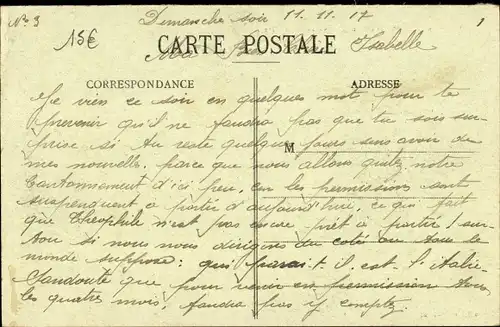 N° 3
Dimanche soir 11.11.17
1
15€
CARTE POSTALE
Ma Isabelle
CORRESPONDANCE
ADRESSE
M
Je vien ce soir en quelques mot pour te
prevenir qu'il ne faudra pas que tu sois sur-
prise si tu reste quelques jours sans avoir de
mes nouvelle. parce que nous allons quitez notre
Cantonnement d'ici peu, car les permissions sont
suspenguent a partir d'aujourd'hui, ce qui fait
que Theophile n'est pas encore prêt à partir! sur-
tou si nous nous dirigons du coté ou tous le
monde suppose: qui parait-il est l'italie
Sandoute que pour venir en permission tous
les quatre mois, faudra pas y comptez.